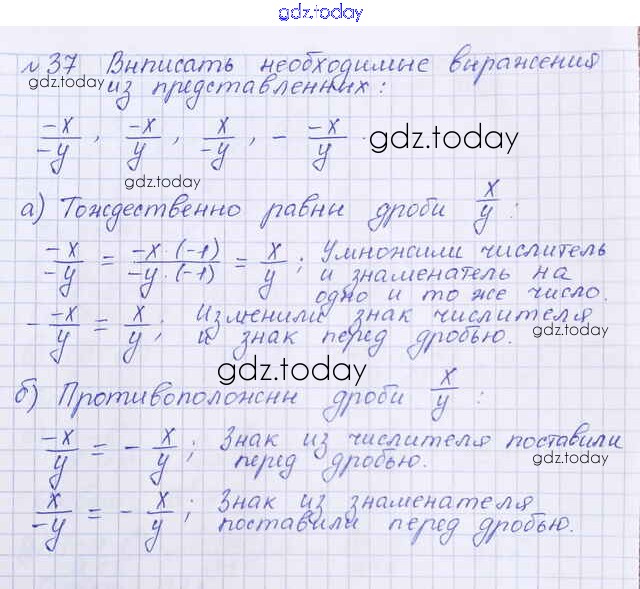 gdz.today
№37 Выписать необходимые выражения
gdz.today из представленных:
-x/-y, -x/y, x/-y, - -x/y. gdz.today
gdz.today
а) Тождественно равны дроби x/y:
-x/-y = -x·(-1)/-y·(-1) = x/y; Умножили числитель
и знаменатель на
одно и то же число.
- -x/y = x/y; Изменили знак числителя
и знак перед дробью. gdz.today
gdz.today
б) Противоположны дроби x/y:
-x/y = - x/y; Знак из числителя поставили
перед дробью. gdz.today
x/-y = - x/y; Знак из знаменателя
поставили перед дробью.